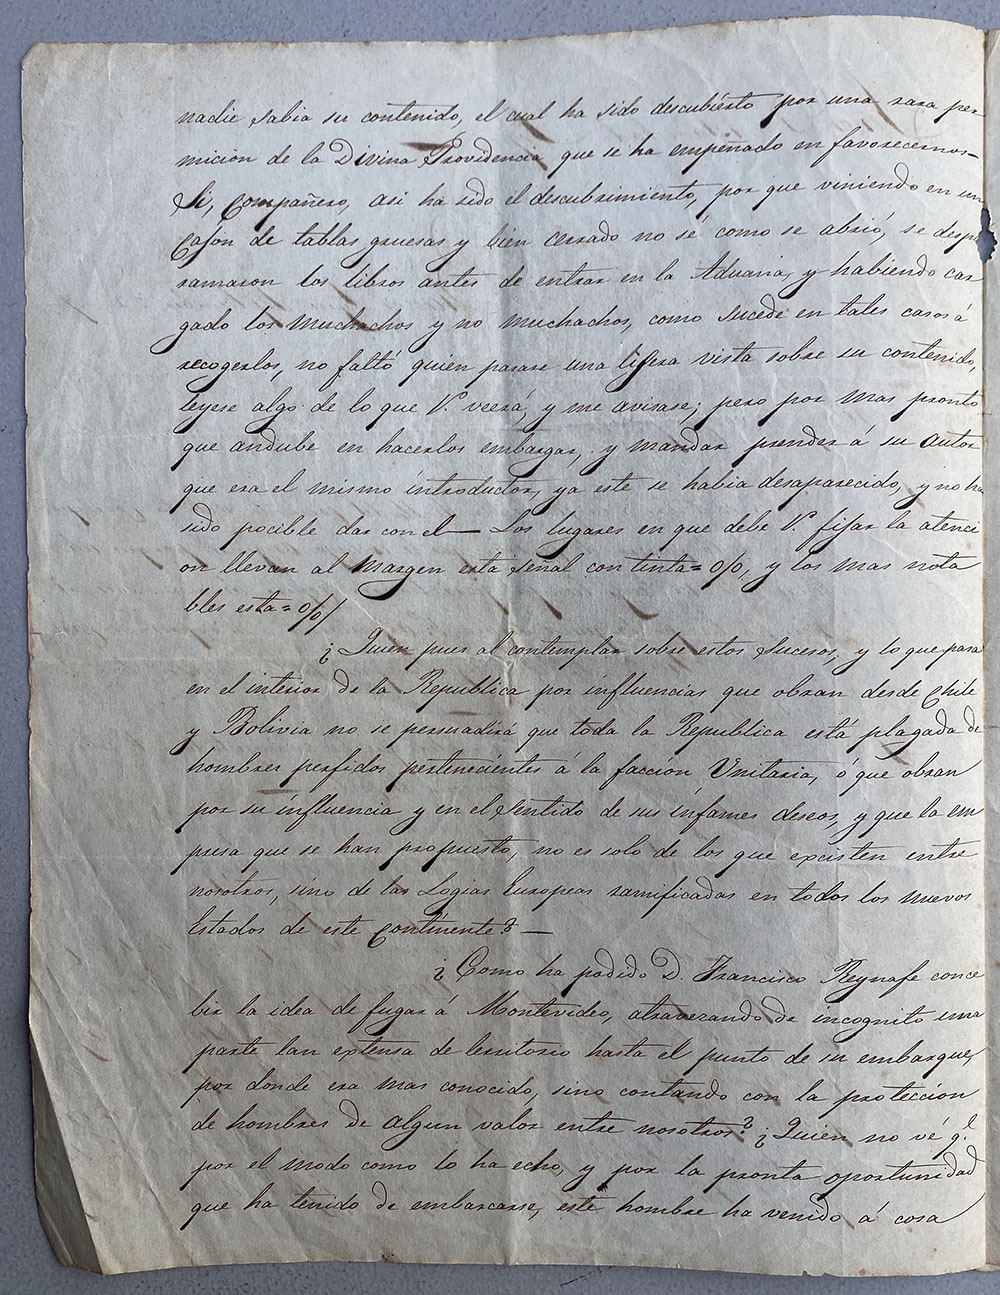 nadie sabia su contenido, el cual ha sido descubierto por una rara per
micion de la Divina Providencia que se ha empeñado en favorecernos—
Si, compañero, asi ha sido el descubrimiento, por que viniendo en un
cajon de tablas gruesas y bien cerrado no sé como se abrió, se despa
ramaron los libros antes de entrar en la Aduana, y habiendo car
gado los muchachos y no muchachos, como sucede en tales casos á
recogerlos, no faltó quien pasase una lijera vista sobre su contenido,
leyese algo de lo que V. veerá, y me avisase; pero por mas pronto
que andube en hacerlos embargar, y mandar prender á su autor
que era el mismo introductor, ya este se habia desaparecido, y no ha
sido pocible dar con el— Los lugares en que debe V. fijar la atenci
on llevan al margen esta señal con tinta= o/o, y los mas nota
bles esta= o/o/
¿Quien pues al contemplar sobre estos sucesos, y lo que pasa
en el interior de la Republica por influencias que obran desde Chile
y Bolivia no se persuadirá que toda la Republica está plagada de
hombres perfidos pertenecientes á la faccion Unitaria, ó que obran
por su influencia y en el sentido de sus infames deseos, y que la em
presa que se han propuesto, no es solo de los que excisten entre
nosotros, sino de las Logias Europeas ramificadas en todos los nuevos
Estados de este continente?—
¿Como ha podido D. Francisco Reynafe conce
bir la idea de fugar á Montevideo, atravezando de incognito una
parte tan extensa de territorio hasta el punto de su embarque,
por donde era mas conocido, sino contando con la protección
de hombres de algun valor entre nosotros? ¿Quien no vé q.e
por el modo como lo ha echo, y por la pronta oportunidad
que ha tenido de embarcarse, este hombre ha venido á cosa